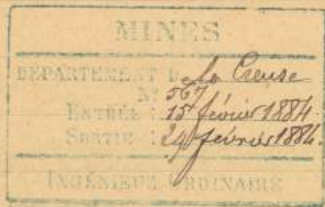 MINES
DÉPARTEMENT De la Creuse
N° 567
ENTRÉE : 15 février 1884.
SORTIE : 29 février 1884.
INGÉNIEUR ORDINAIRE